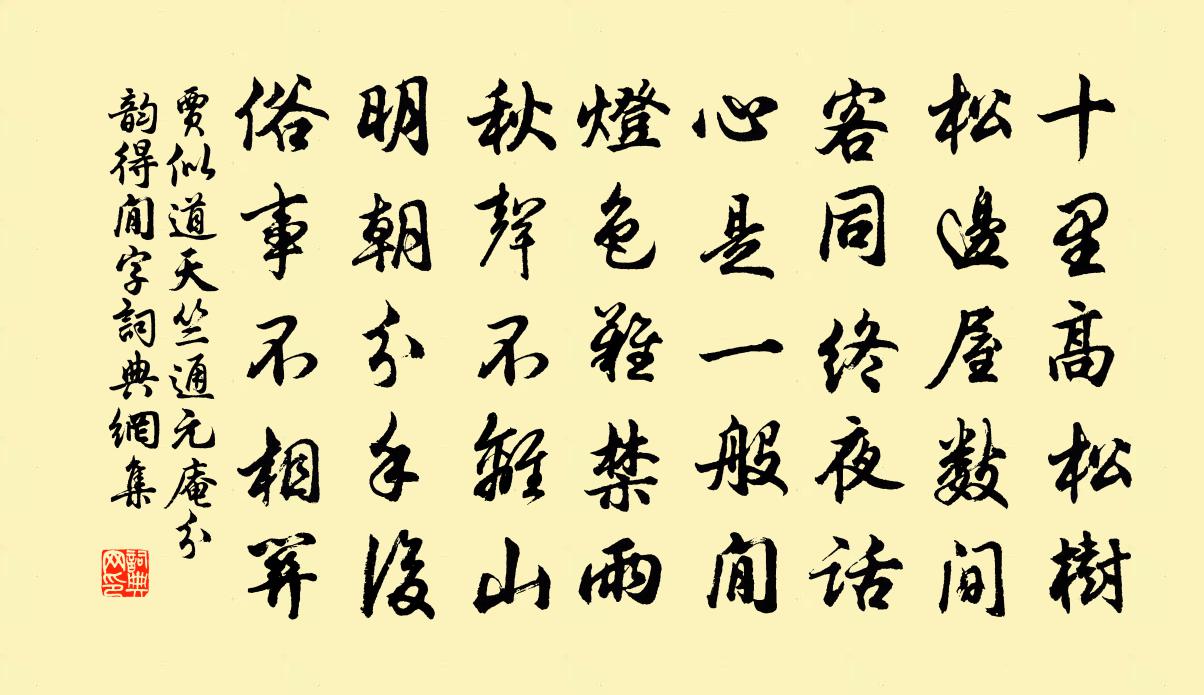 十里高松樹
松邊屋數間
客同終夜話
心是一般閒
燈色難禁雨
秋聲不離山
明朝分手後
俗事不相關
賈似道天竺通元庵分
韵得閒字詞典網集
詞典
网印